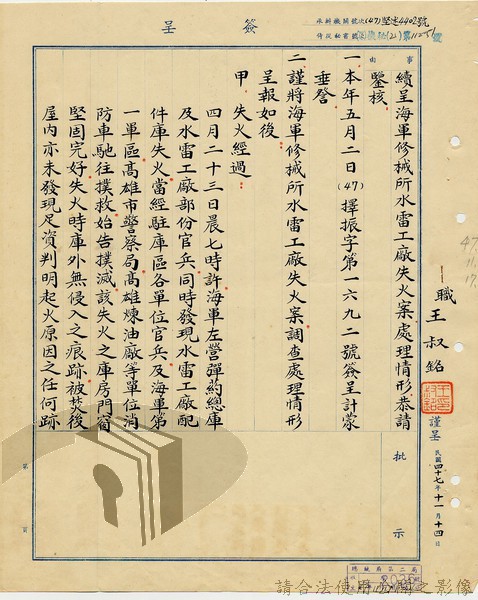 簽呈
承辦機關號次(47)堅述4402號
事由
續呈海軍修械所水雷工廠失火案處理情形恭請
鑒核
職 王叔銘 謹呈 民國四十七年十一月十四日
一、本年五月二日(47)擇振字第一六九二號簽呈計蒙
垂詧
二、謹將海軍修械所水雷工廠失火案調查處理情形
呈報如後:
甲、失火經過:
四月二十三日晨七時許海軍左營彈葯總庫
及水雷工廠部份官兵同時發現水雷工廠配
件庫失火當經駐庫區各單位官兵及海軍第
一軍區高雄市警察局高雄煉油廠等單位消
防車馳往撲救始告撲滅該失火之庫房門窗
堅固完好失火時庫外無侵入之痕跡被焚後
屋内亦未發現足資判明起火原因之任何跡
批示
第 頁
請合法使用公開之影像